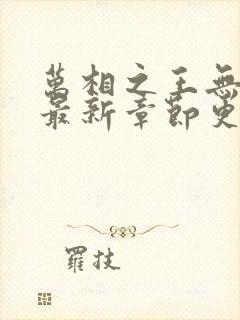 萬相之王無
最新章節更
羅技